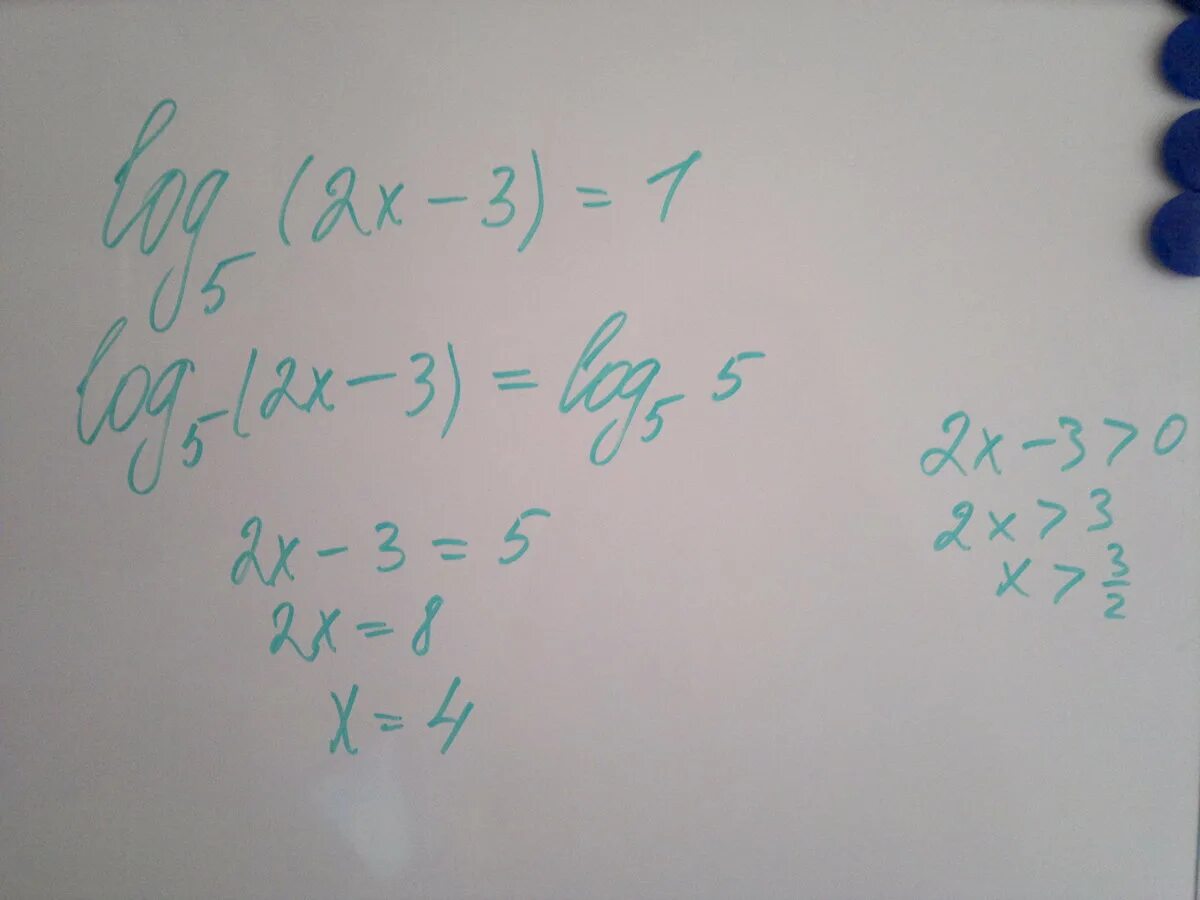 log₅ (2x - 3) = 1
log₅ (2x - 3) = log₅ 5
2x - 3 = 5
2x = 8
x = 4
2x - 3 > 0
2x > 3
x > 3/2